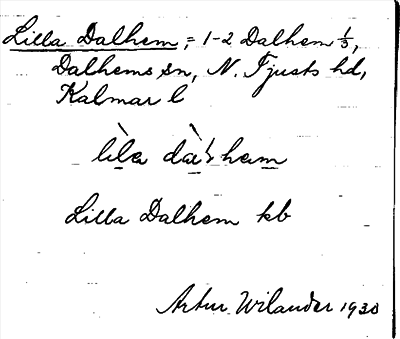 Lilla Dalhem, = 1-2 Dalhem 1/3,
Dalhems sn, N. Tjusts hd,
Kalmar l
lìla dà hem
Lilla Dalhem kb
Artur Wilander 1930